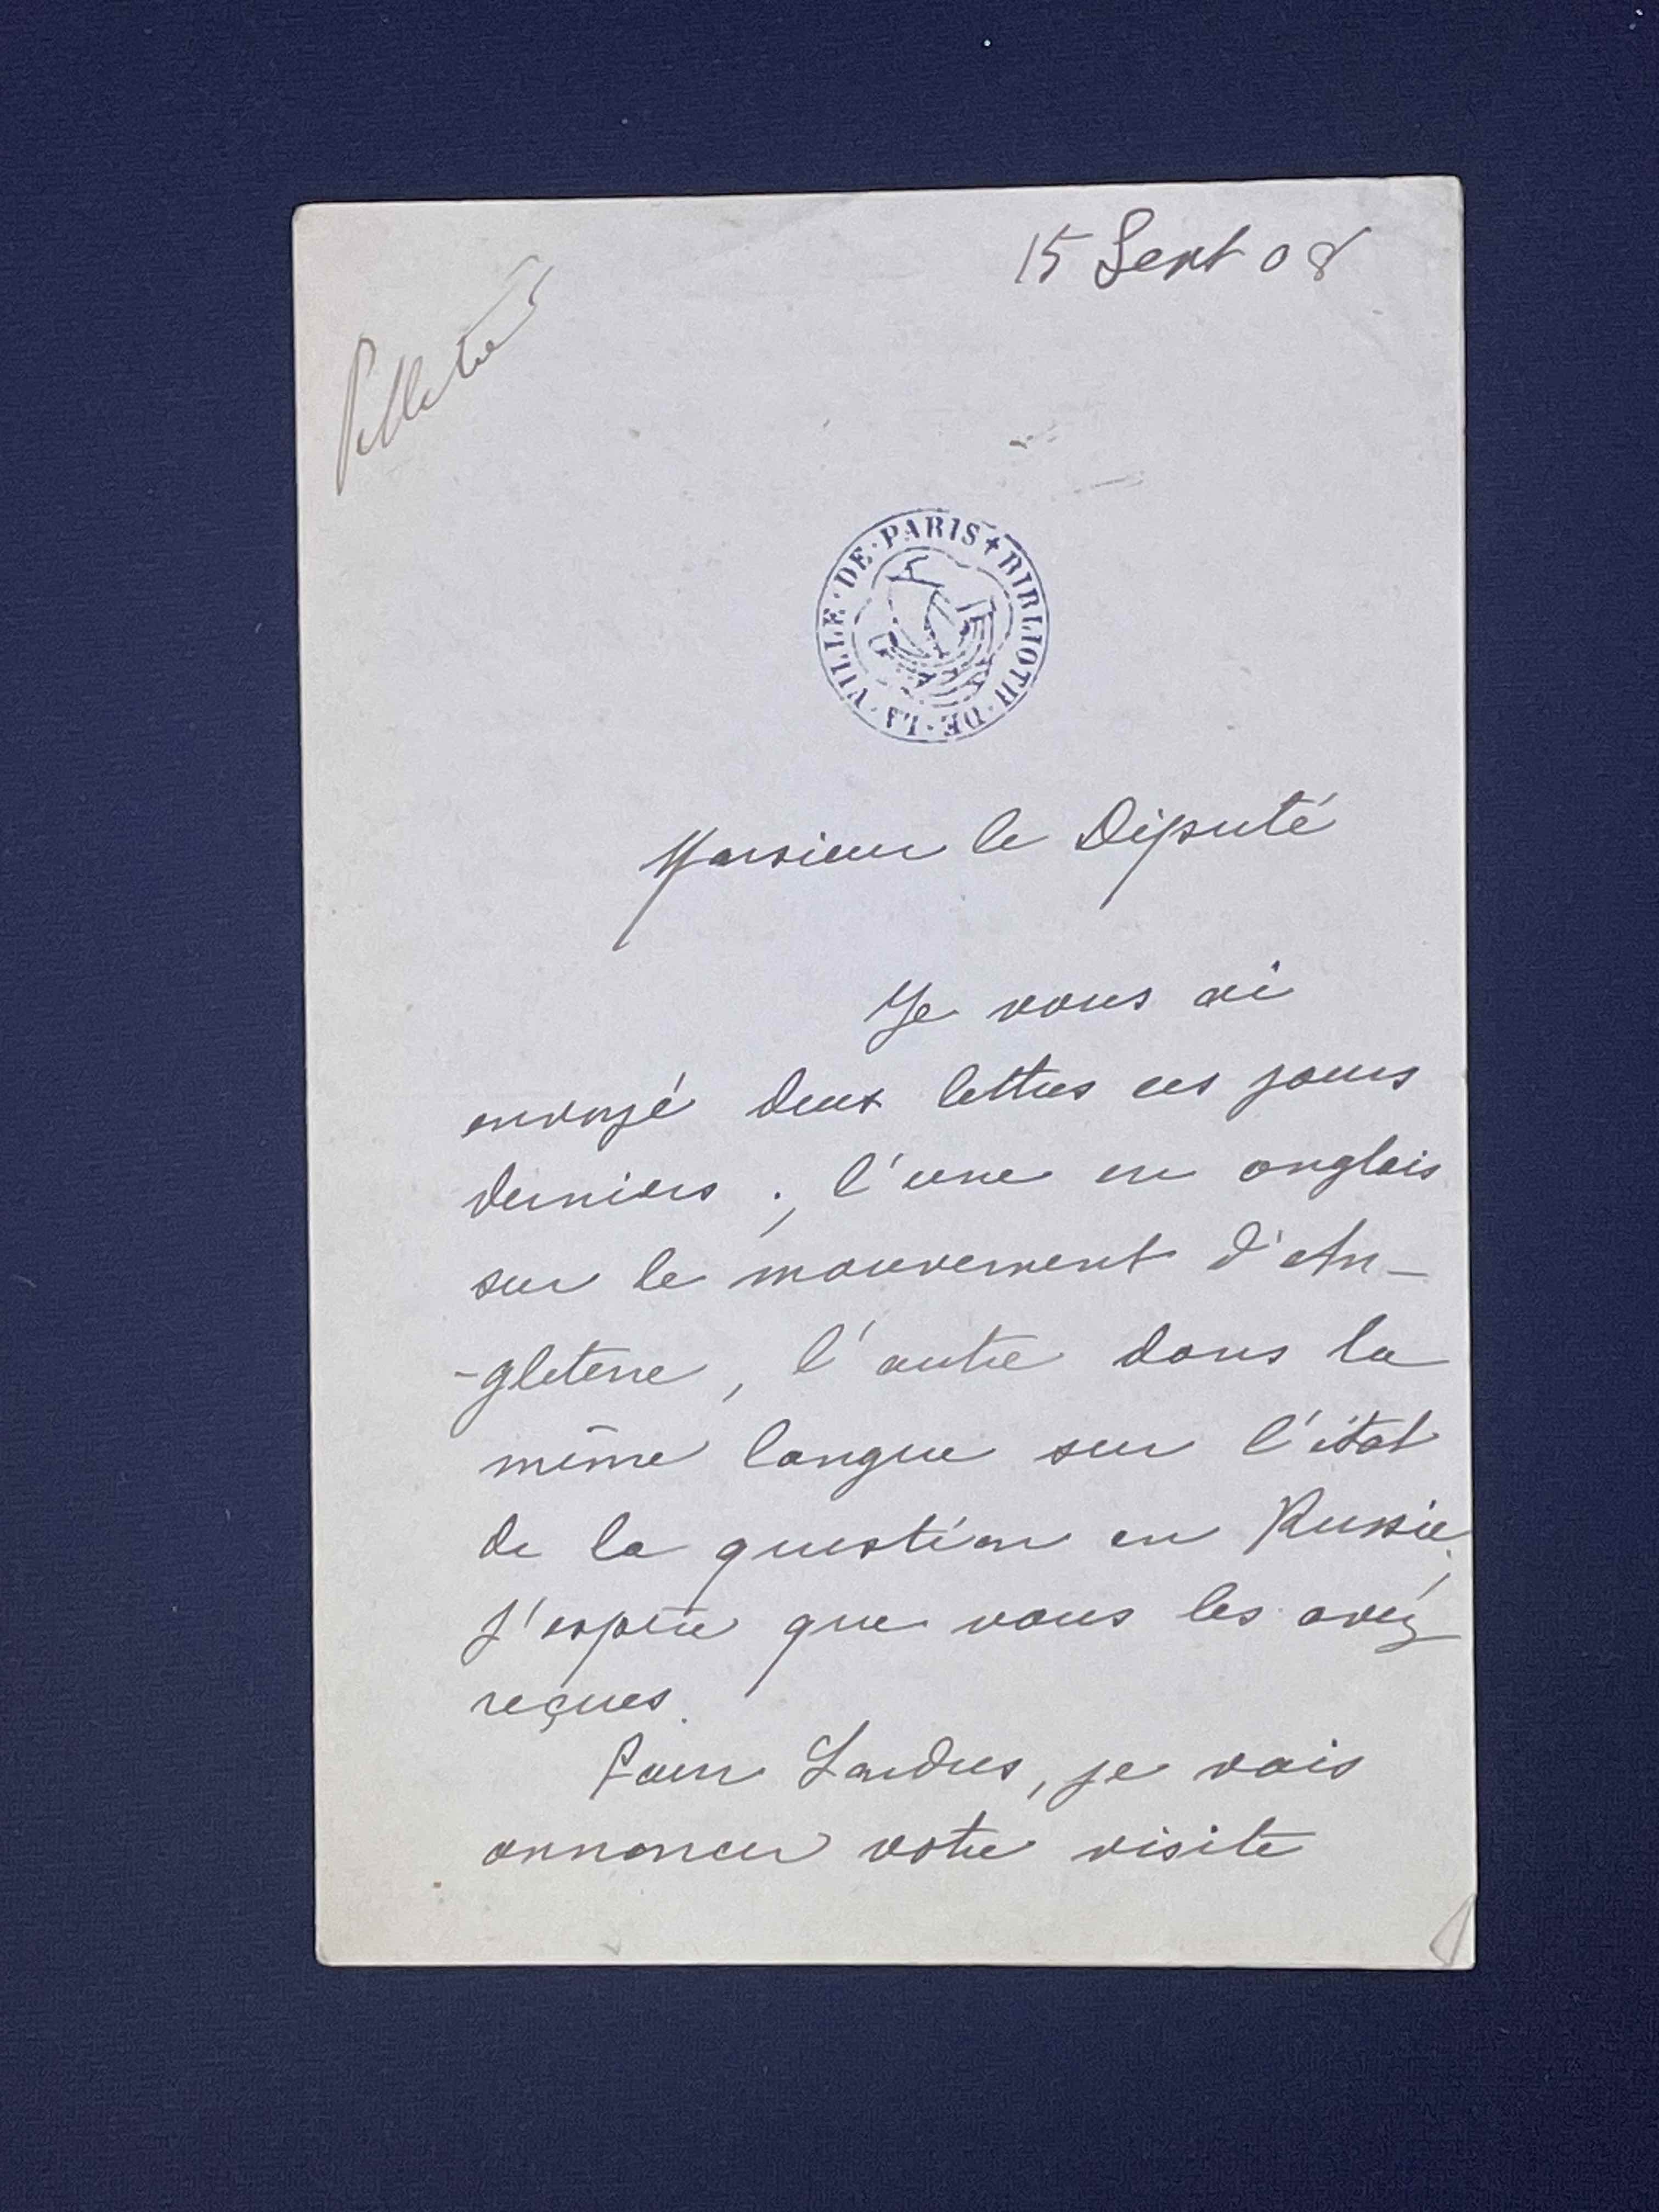 15 Sept 08
Pelletier
BIBLIOTH · DE · LA · VILLE · DE · PARIS
Monsieur le Député
Je vous ai
envoyé deux lettres ces jours
derniers ; l'une en anglais
sur le mouvement d'An-
-gleterre, l'autre dans la
même langue sur l'état
de la question en Russie,
j'espère que vous les avez
reçues.
Pour Londres, je vais
annoncer votre visite